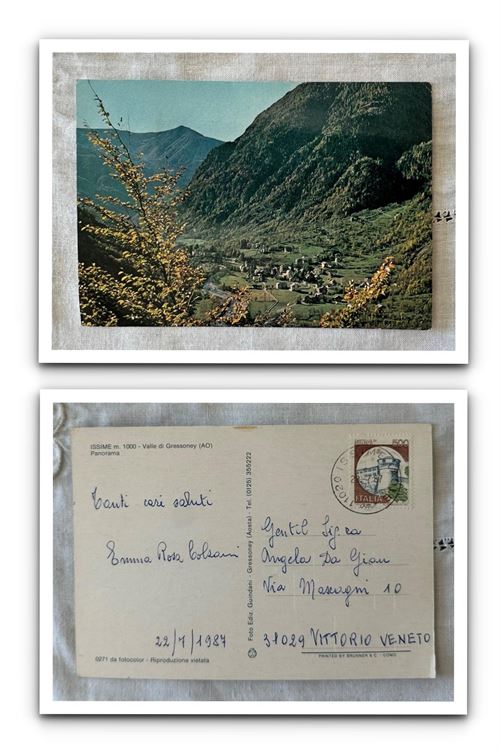 ISSIME m. 1000 - Valle di Gressoney (AO)
Panorama
Tanti cari saluti
Emma Rosa
22/7/1987
0271 da fotocolor - Riproduzione vietata
Foto Ediz. Guindani - Gressoney (Aosta) - Tel. (0125) 355222
500
ITALIA
Gentil Sig.ra
Angela Da Gian
Via Mascagni 10
31029 VITTORIO VENETO
PRINTED BY BRUNNER & C. - COMO